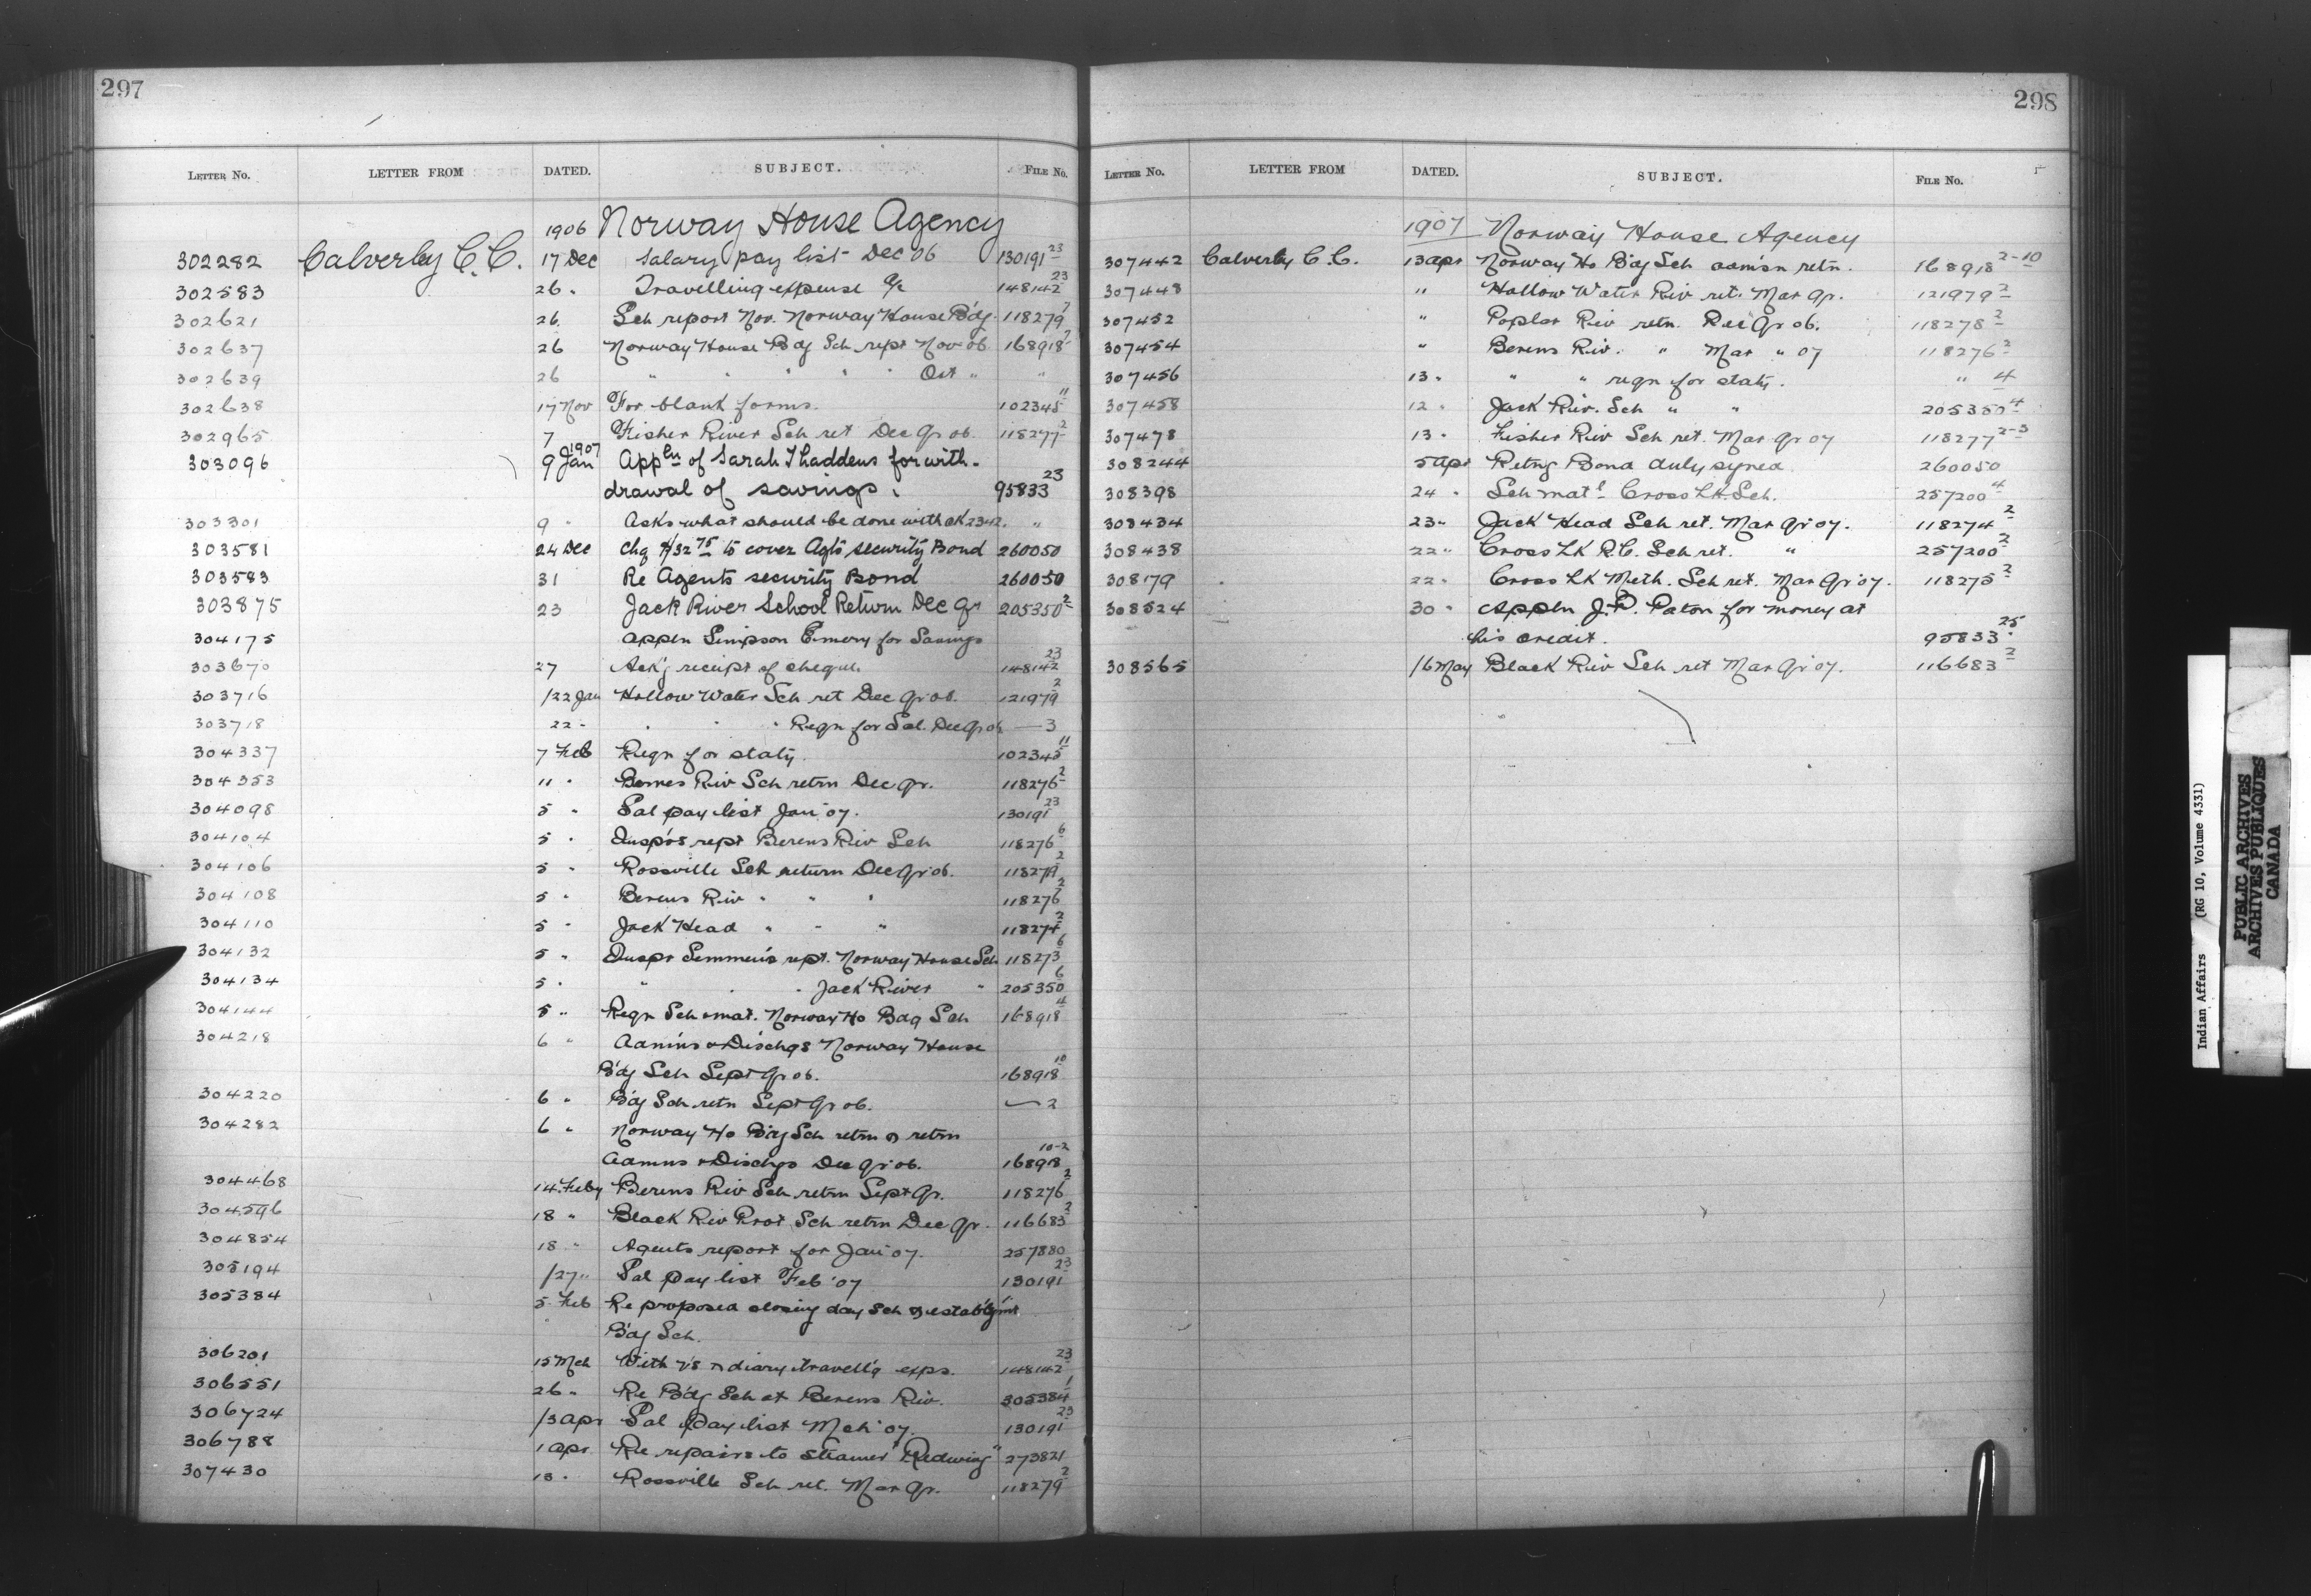 297
LETTER NO. LETTER FROM DATED. SUBJECT. FILE NO.
1906 Norway House Agency
302282 Calverley C.C. 17 Dec Salary pay list Dec 06 130191 23
302583 26 " Travelling expense a/c 148142 23
302621 26 Sch report Nov. Norway House B'dg 118279 7
302637 26 Norway House Bdg Sch rept Nov 06 168918 7
302639 26 " " " " " Oct " "
302638 17 Nov For blank forms. 102345 11
302965 7 Fisher River Sch ret Dec Qr 06. 118277 2
1907
303096 9 Jan Appln of Sarah Thaddeus for with-
drawal of savings. 95833 23
303301 9 " Asks what should be done with ck 2342. "
303581 24 Dec Chq $32 75 to cover Agts security Bond 260050
303583 31 Re Agents security Bond 260050
303875 23 Jack River School Return Dec Qr 205350 2
304175 Appln Simpson Emery for Savings
303670 27 Ack'g receipt of cheque. 148142 23
303716 /22 Jan Hollow Water Sch ret Dec Qr 06. 121979 2
303718 22 " " " " Reqn for Sal. Dec Qr 06 — 3
304337 7 Feb Reqn for staty. 102345 11
304353 11 " Bernes Riv Sch retrn Dec Qr. 118276 2
304098 5 " Sal pay list Jan' 07. 130191 23
304104 5 " Inspr's rept Berens Riv Sch 118276 6
304106 5 " Rossville Sch return Dec Qr 06. 118279 2
304108 5 " Berens Riv " " " 118276 2
304110 5 " Jack Head " " " 118274 2
304132 5 " Inspr Semmens rept. Norway House Sch 118273 6
304134 5 " " " " Jack River " 205350 6
304144 5 " Reqn Sch mat. Norway Ho Bdg Sch 168918 4
304218 6 " Admins & Dischgs Norway House
B'dg Sch Sept Qr 06. 168918 10
304220 6 " B'dg Sch retn Sept Qr 06. — 2
304282 6 " Norway Ho B'dg Sch retrn & retrn
Admns & Dischgs Dec Qr 06. 168918 10-2
304468 14 Feby Berens Riv Sch retrn Sept Qr. 118276 2
304596 18 " Black Riv Prot Sch retrn Dec Qr. 116683 2
304854 18 " Agents report for Jan' 07. 257880
305194 /27 " Sal pay list Feb' 07 130191 23
305384 5 Feb Re proposed closing day Sch & establ'g'mt
B'dg Sch.
306201 15 Mch With v's & diary travell'g exps. 148142 23
306551 26 " Re B'dg Sch at Berens Riv. 305384 1
306724 /3 Apr Sal Pay list Mch' 07. 130191 23
306788 1 apr. Re repairs to Steamer "Redwing" 273821
307430 13 " Rossville Sch ret. Mar Qr. 118279 2
298
LETTER NO. LETTER FROM DATED. SUBJECT. FILE NO.
1907 Norway House Agency
307442 Calverly C.C. 13 apr Norway Ho B'dg Sch adm'sn retn. 168918 2-10
307448 " Hollow Water Riv ret. Mar Qr. 121979 2
307452 " Poplar Riv retn. Dec Qr 06. 118278 2
307454 " Berens Riv. " Mar " 07 118276 2
307456 13 " " " reqn for staty. " 4
307458 12 " Jack Riv. Sch " " 205350 4
307478 13 " Fisher Riv Sch ret. Mar Qr 07 118277 2-3
308244 5 apr Retng Bond duly signed 260050
308398 24 " Sch mat'l Cross Lk. Sch. 257200 4
308434 23 " Jack Head Sch ret. Mar Qr 07. 118274 2
308438 22 " Cross Lk R.C. Sch ret. " 257200 2
308179 22 " Cross Lk Meth. Sch ret. Mar Qr '07. 118275 2
308524 30 " Appln J.P. Paton for money at
his credit. 95833 25
308565 /6 May Black Riv Sch ret Mar Qr 07. 116683 2
Indian Affairs (RG 10, Volume 4331)
PUBLIC ARCHIVES
ARCHIVES PUBLIQUES
CANADA